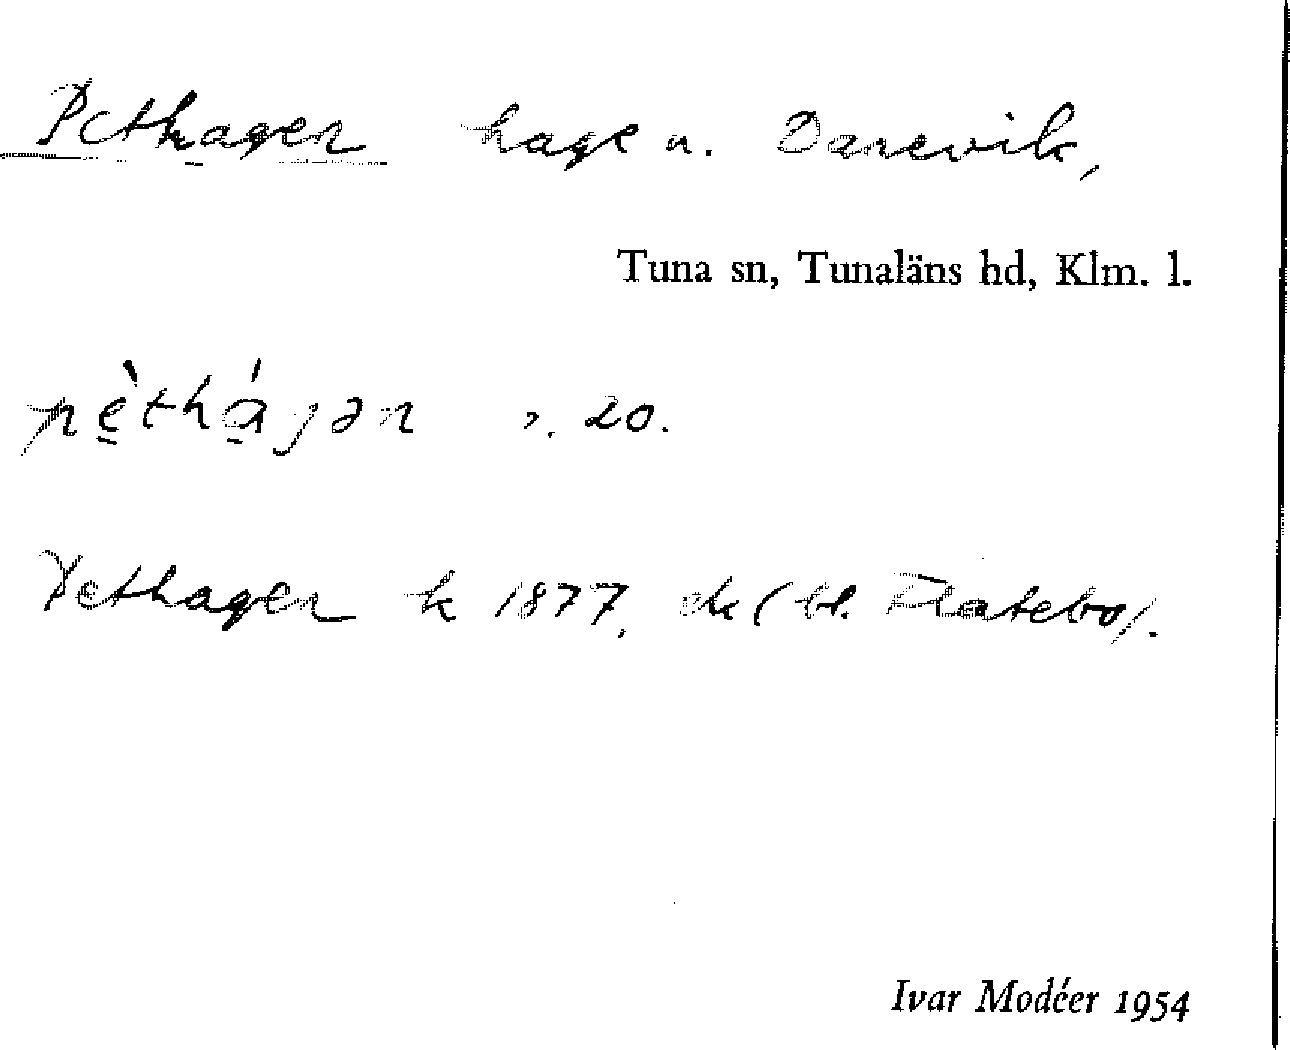 Pethagen hage u. Danevik,
Tuna sn, Tunaläns hd, Klm. l.
pèthájən 20.
Pethagen k 1877, ek (bl. Flatebo).
Ivar Modéer 1954